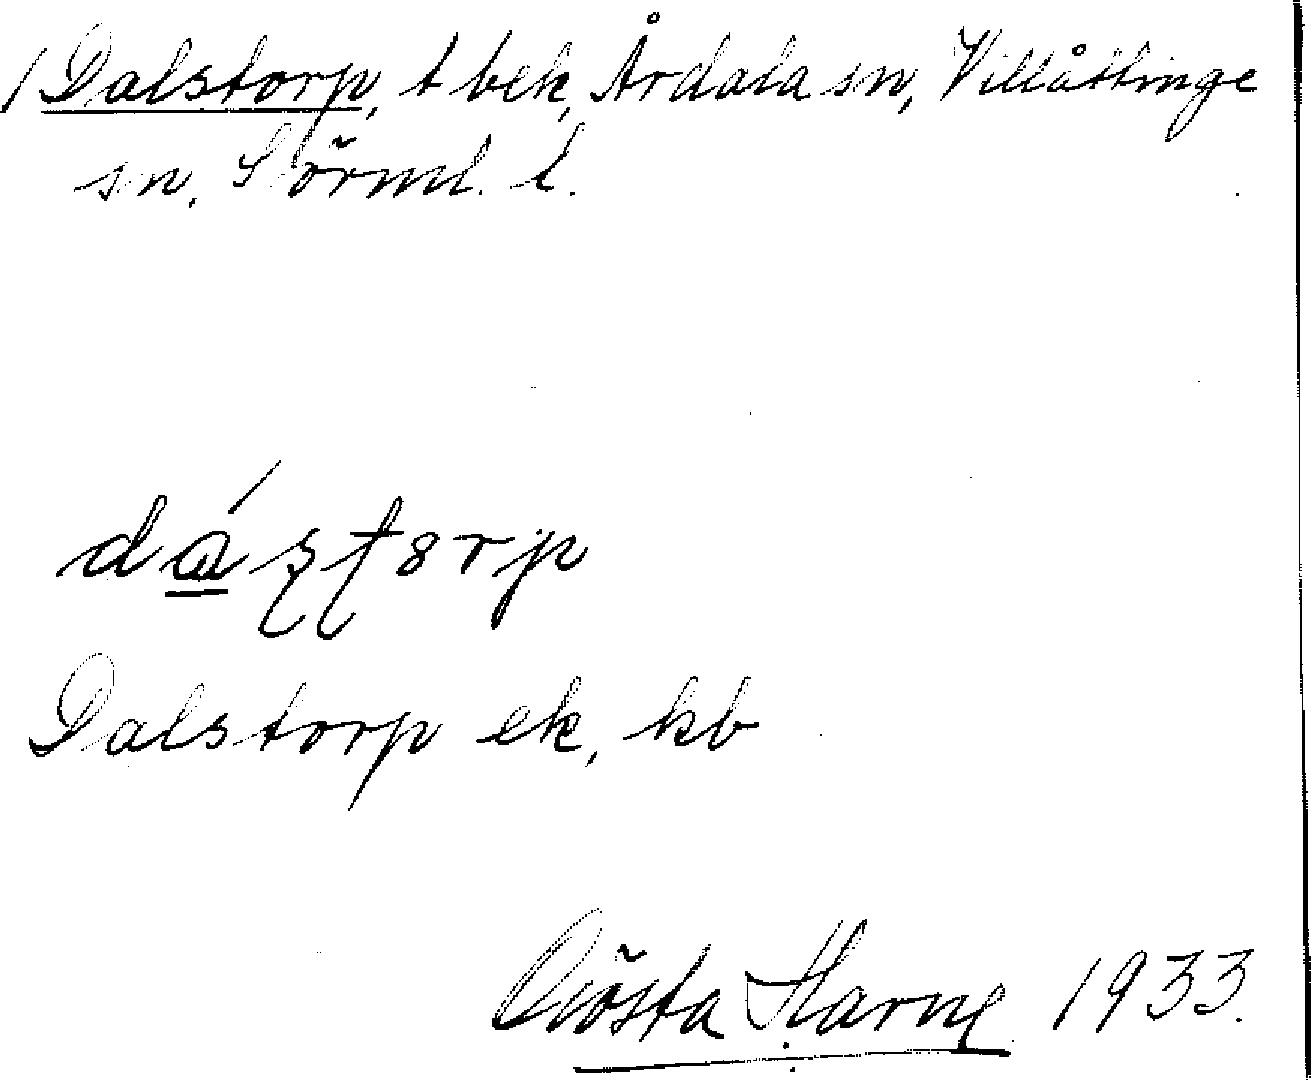 /Dalstorp, t bek, Årdala sn, Villåttinge
sn, Sörml. l.
dáʂʈ8rp
Dalstorp ek, kb
Gösta Harne 1933.